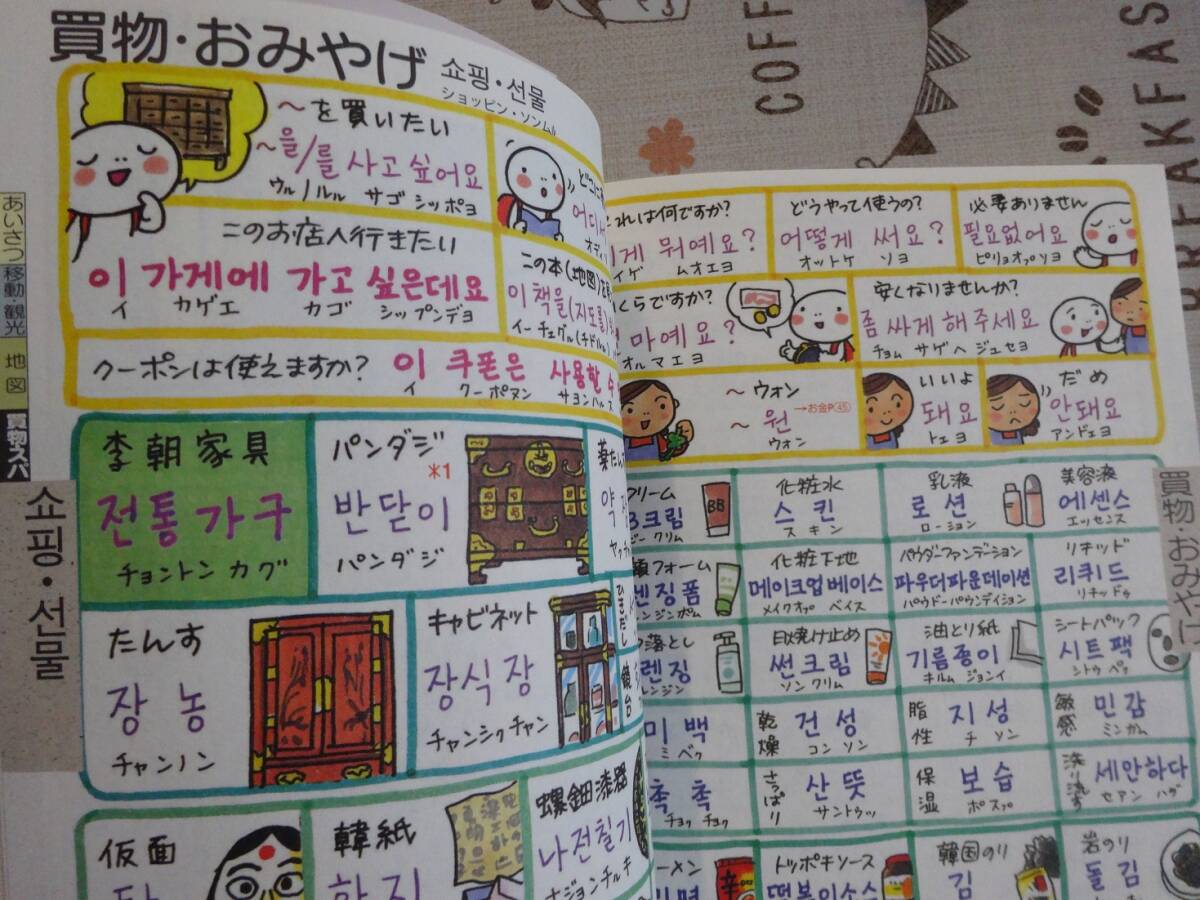 買物・おみやげ
쇼핑・선물
ショッピン・ソンムル
～を買いたい
～을/를 사고 싶어요
ウル／ルル サゴ シッポヨ
このお店へ行きたい
이 가게에 가고 싶은데요
イ カゲエ カゴ シップンデヨ
この本(地図)を
이 책을(지도를)
イ チェグル(チドルル)
クーポンは使えますか?
이 쿠폰은 사용할 수
イ クーポヌン サヨンハル ス
李朝家具
전통 가구
チョントン カグ
パンダジ
*1
반닫이
パンダジ
たんす
장 농
チャンノン
キャビネット
장식 장
チャンシク チャン
ひきだし
鏡台
仮面
탈
韓紙
한지
螺鈿漆器
나전칠기
ナジョンチルギ
あいさつ
移動・観光
地図
買物
쇼핑・선물
れは何ですか?
게 뭐예요?
イゲ ムオエヨ
どうやって使うの?
어떻게 써요?
オットケ ソヨ
必要ありません
필요없어요
ピリョオプソヨ
くらですか?
마예요?
オルマエヨ
安くなりませんか?
좀 싸게 해주세요
チョム サゲ ヘ ジュセヨ
～ ウォン
～ 원
ウォン
→お金P㊺
いいよ
돼요
トェヨ
だめ
안돼요
アンドェヨ
クリーム
BB
크림
ビー クリム
化粧水
스킨
スキン
乳液
로션
ローション
美容液
에센스
エッセンス
顔フォーム
렌징폼
レンジンポム
化粧下地
메이크업베이스
メイクオプ ベイス
パウダーファンデーション
파우더파운데이션
パウドーパウンデイション
リキッド
리퀴드
リキッドゥ
落とし
렌징
レンジン
日焼け止め
썬크림
ソンクリム
油とり紙
기름종이
キルム ジョンイ
シートパック
시트팩
シトゥ ペク
미백
ミベク
乾燥
건성
コンソン
脂性
지성
チソン
敏感
민감
ミンガム
촉촉
チョク チョク
さっぱり
산뜻
サントゥッ
保湿
보습
ポスプ
洗い流す
세안하다
セアン ハダ
ーメン
라면
トッポキソース
떡볶이소스
韓国のり
김
岩のり
돌김
買物・おみやげ
COFF
BREAKFAS